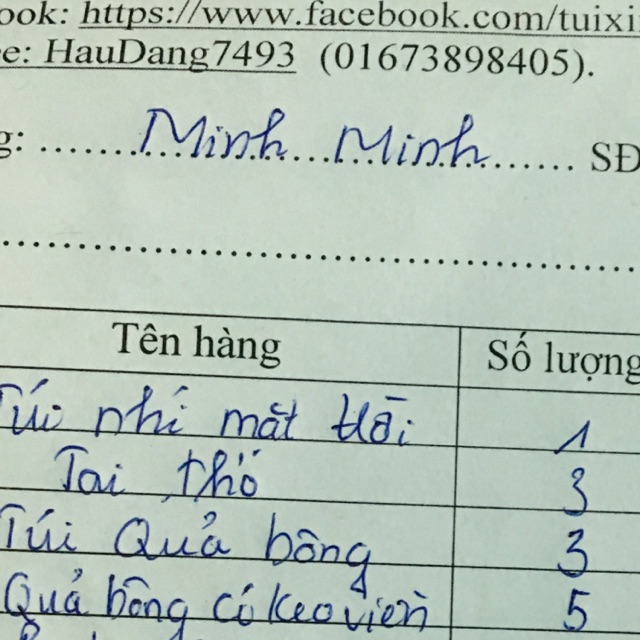 ook: https://www.facebook.com/tuixi
e: HauDang7493 (01673898405).
g: ........ Minh Minh ........ SĐ
Tên hàng Số lượng
Túi nhí mắt 1
Tai thỏ 3
Túi Quả bông 3
Quả bông có keo viền 5